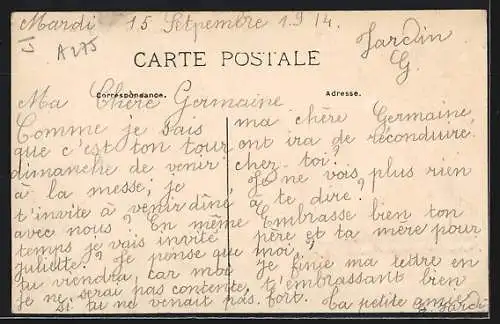 Mardi 15 Setpembre 1914.
A275
Jardin
G.
CARTE POSTALE
Correspondance.
Adresse.
Ma Chère Germaine
Comme je sais
que c'est ton tour
dimanche de venir
à la messe, je
t'invite à venir dîné
avec nous? En même
temps je vais invité
juliette? Je pense que
tu viendra, car moi
je ne serai pas contente,
si tu ne venait pas.
ma chère Germaine,
ont ira de réconduire
cher toi?
Je ne vois plus rien
à te dire?
Embrasse bien ton
père et ta mère pour
moi,
Je finie ma lettre en
t'embrassant bien
fort. Ta petite amie